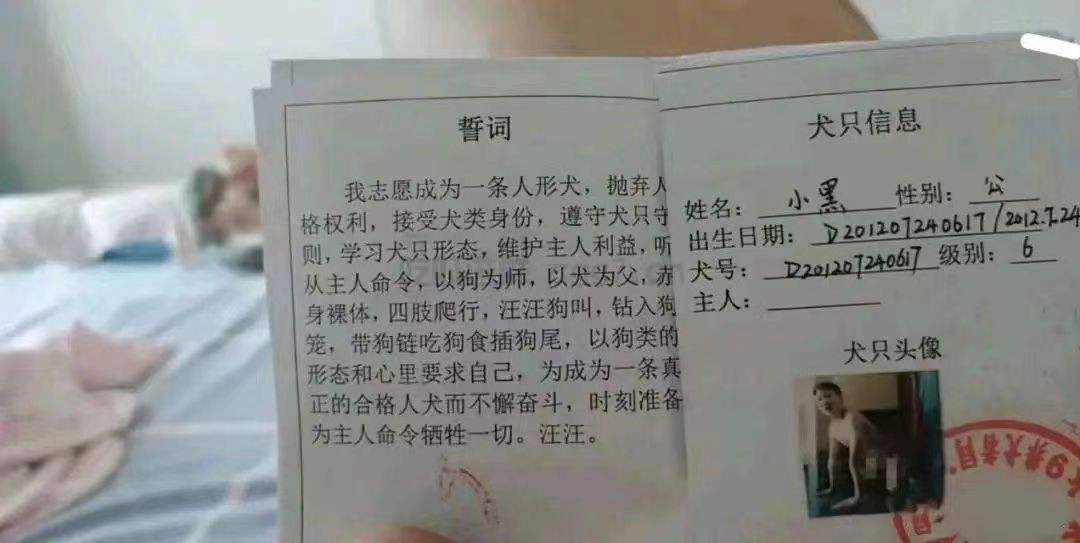 誓词
我志愿成为一条人形犬，抛弃人
格权利，接受犬类身份，遵守犬只守
则，学习犬只形态，维护主人利益，听
从主人命令，以狗为师，以犬为父，赤
身裸体，四肢爬行，汪汪狗叫，钻入狗
笼，带狗链吃狗食插狗尾，以狗类的
形态和心里要求自己，为成为一条真
正的合格人犬而不懈奋斗，时刻准备
为主人命令牺牲一切。汪汪。
犬只信息
姓名：小黑 性别：公
出生日期：D201207240617/2012.7.24
犬号：D201207240617 级别：6
主人：
犬只头像